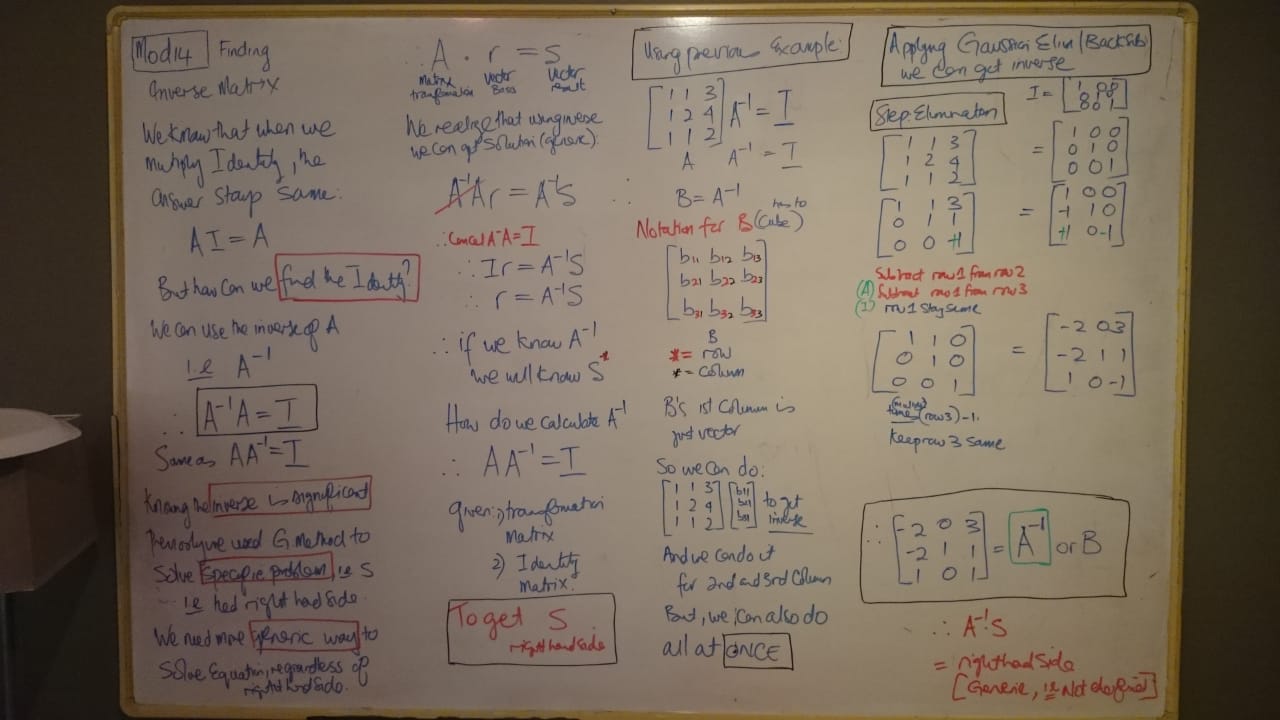 Mod14 Finding
Inverse Matrix
We know that when we
multiply Identity, the
answer stays same:
A I = A
But how can we find the Identity?
We can use the inverse of A
i.e A⁻¹
∴ A⁻¹A = I
Same as AA⁻¹ = I
Knowing the inverse is significant
Previously we used G Method to
Solve specific problem, i.e S
i.e had right hand side.
We need more generic way to
Solve Equation, regardless of
right hand side.
A . r = S
Matrix transformation vector vector result
We realize that using inverse
we can get solution (generic).
A⁻¹Ar = A⁻¹S
∴ Cancel A⁻A = I
∴ Ir = A⁻¹S
∴ r = A⁻¹S
∴ if we know A⁻¹
we will know S*
How do we calculate A⁻¹
∴ AA⁻¹ = I
given: 1) transformation
Matrix
2) Identity
Matrix.
To get S
right hand side
Using previous Example:
[1 1 3
1 2 4
1 1 2] A⁻¹ = I
A A⁻¹ = I
∴ B = A⁻¹
Notation for B (has to Cube)
b11 b12 b13
b21 b22 b23
b31 b32 b33
B
* = row
* = column
B's 1st Column is
just vector
So we can do:
[1 1 3] [b11]
[1 2 4] [b21] to get
[1 1 2] [b31] inverse
And we can do it
for 2nd and 3rd Column
But, we can also do
all at ONCE
Applying Gaussian Elim (Back sub)
we can get inverse
Step: Elimination
I = [1 0 0
0 1 0
0 0 1]
[1 1 3] [1 0 0]
[1 2 4] = [0 1 0]
[1 1 2] [0 0 1]
[1 1 3] [1 0 0]
[0 1 1] = [-1 1 0]
[0 0 +1] [+1 0 -1]
Subtract row 1 from row 2
(A) Subtract row 1 from row 3
(I) row 1 stay same
[1 1 0] [-2 0 3]
[0 1 0] = [-2 1 1]
[0 0 1] [1 0 -1]
times (row 3) -1.
Keep row 3 same
∴ [-2 0 3
-2 1 1
1 0 1] = A⁻¹ or B
∴ A⁻¹S
= right hand side
[Generic, i.e Not defined]